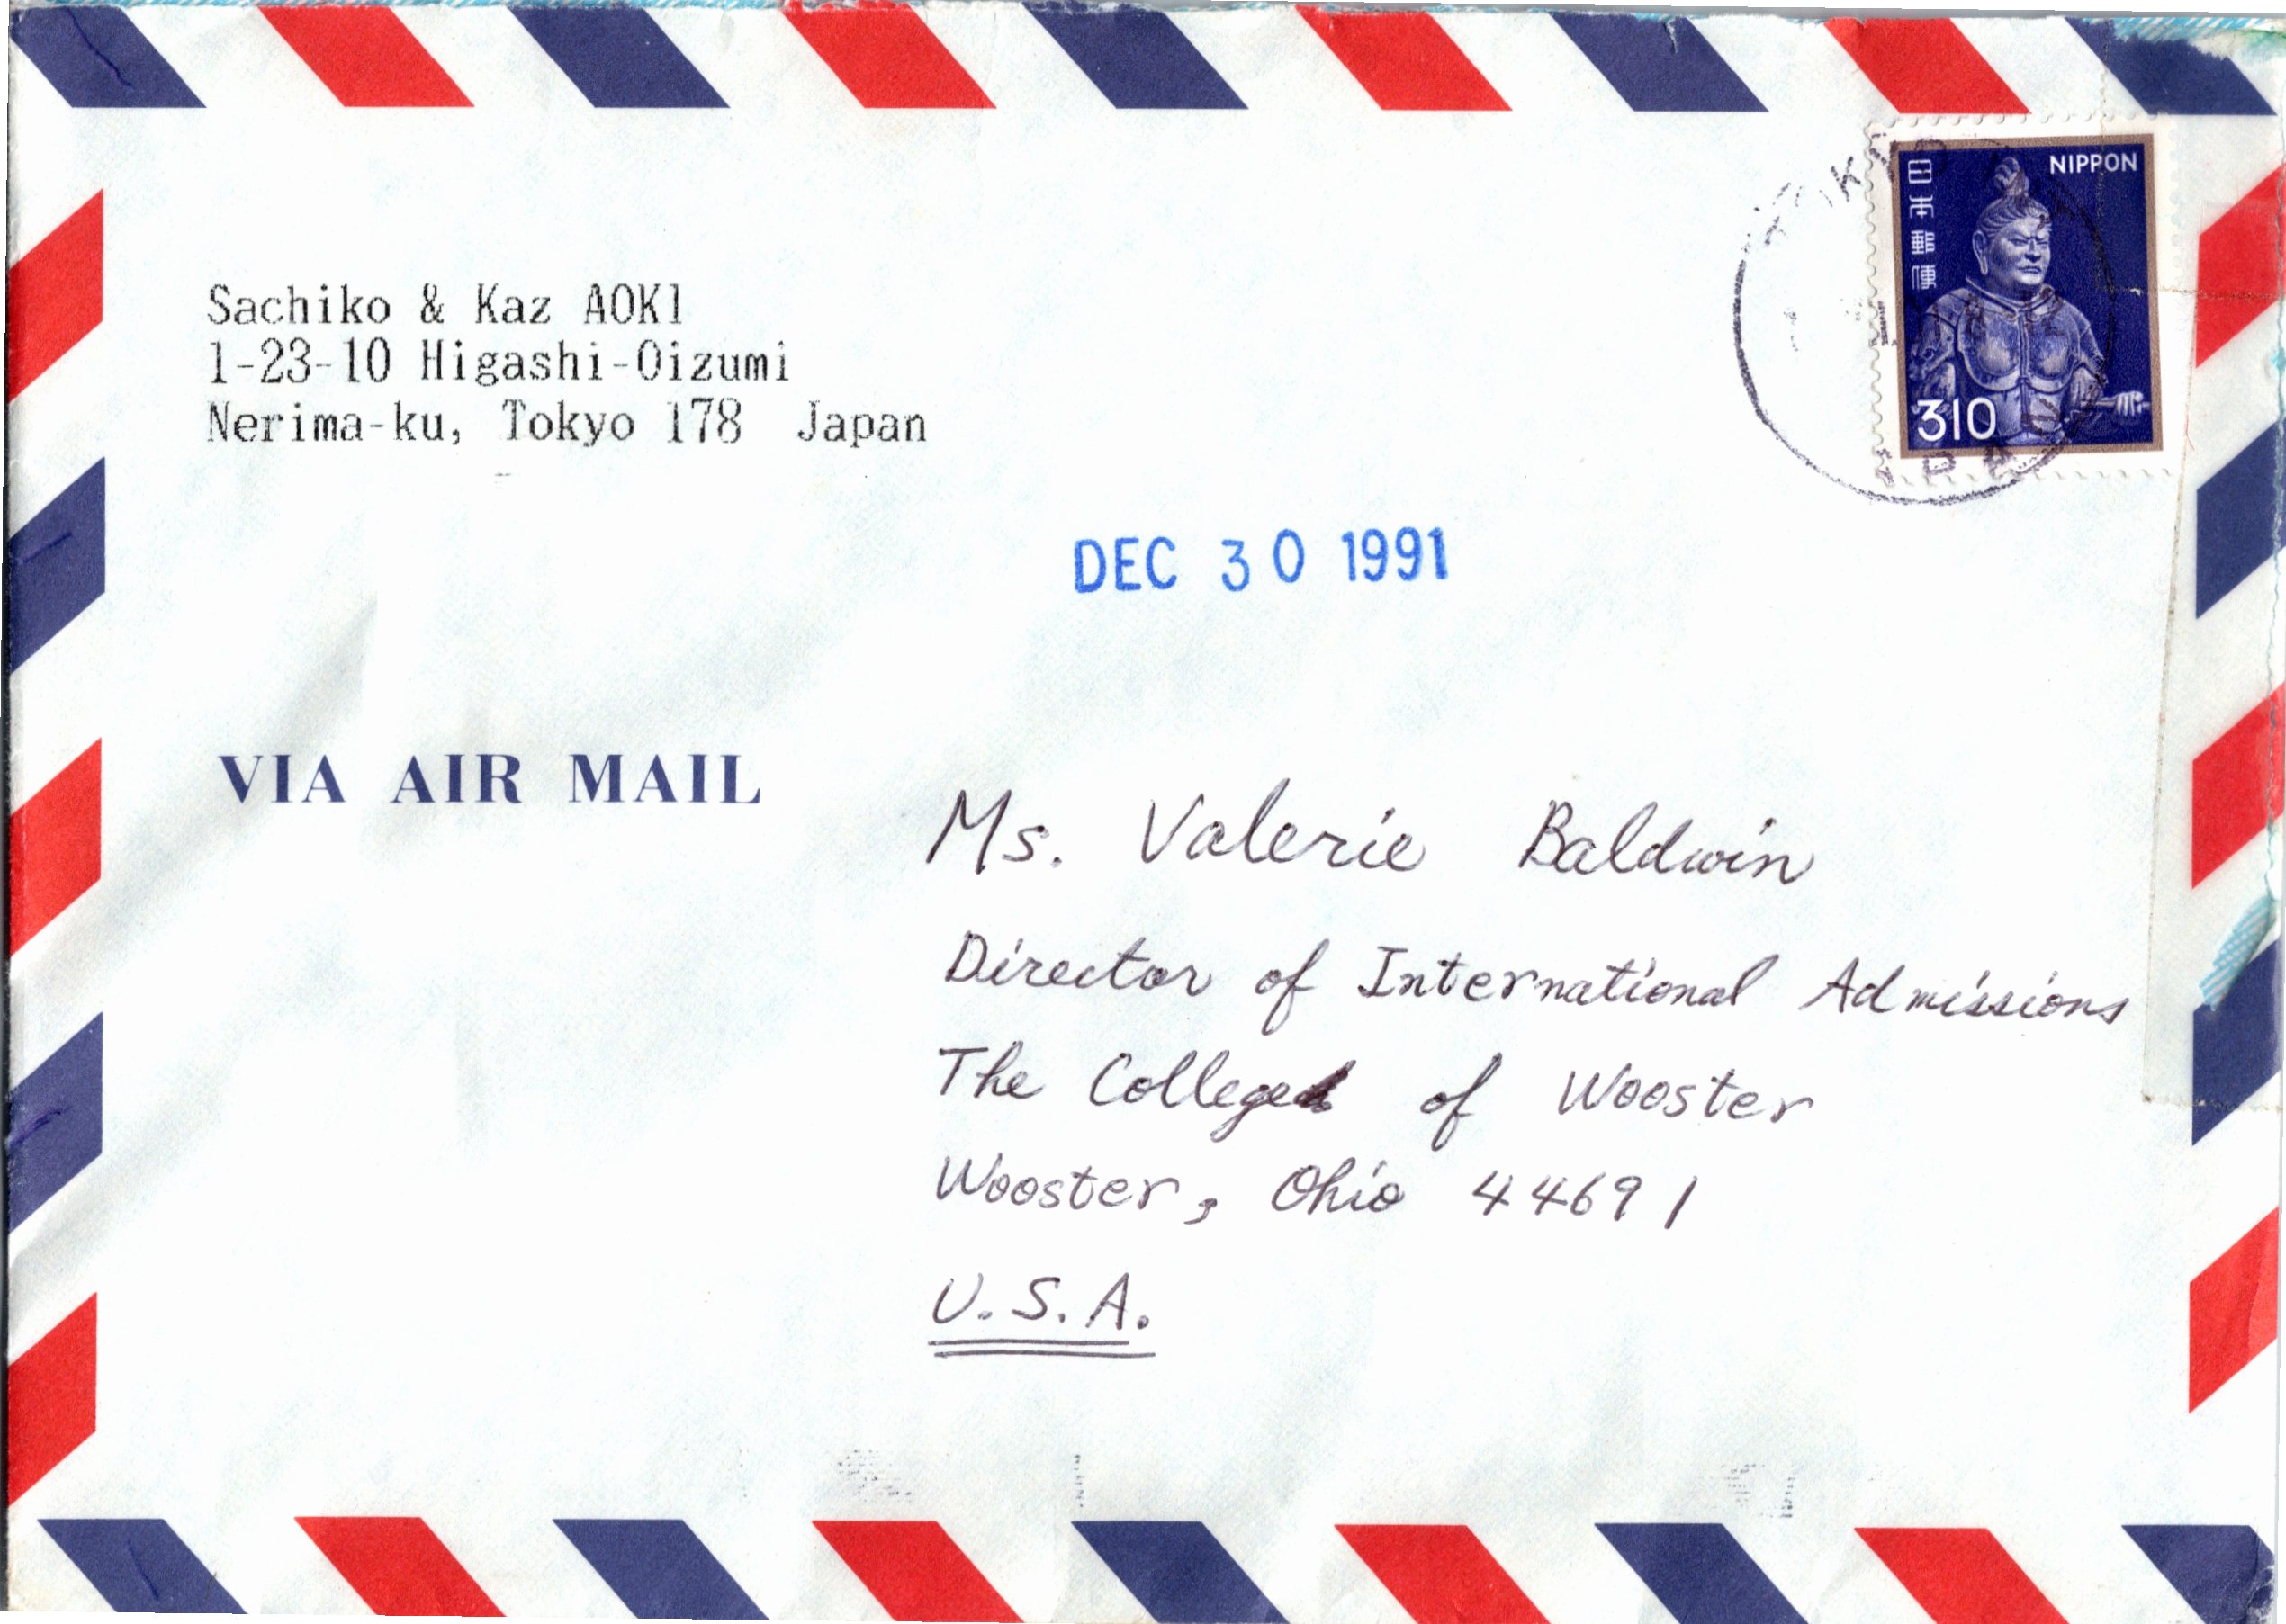 Sachiko & Kaz AOKI
1-23-10 Higashi-Oizumi
Nerima-ku, Tokyo 178 Japan
NIPPON
日本郵便
310
DEC 30 1991
VIA AIR MAIL
Ms. Valerie Baldwin
Director of International Admissions
The College of Wooster
Wooster, Ohio 44691
U.S.A.